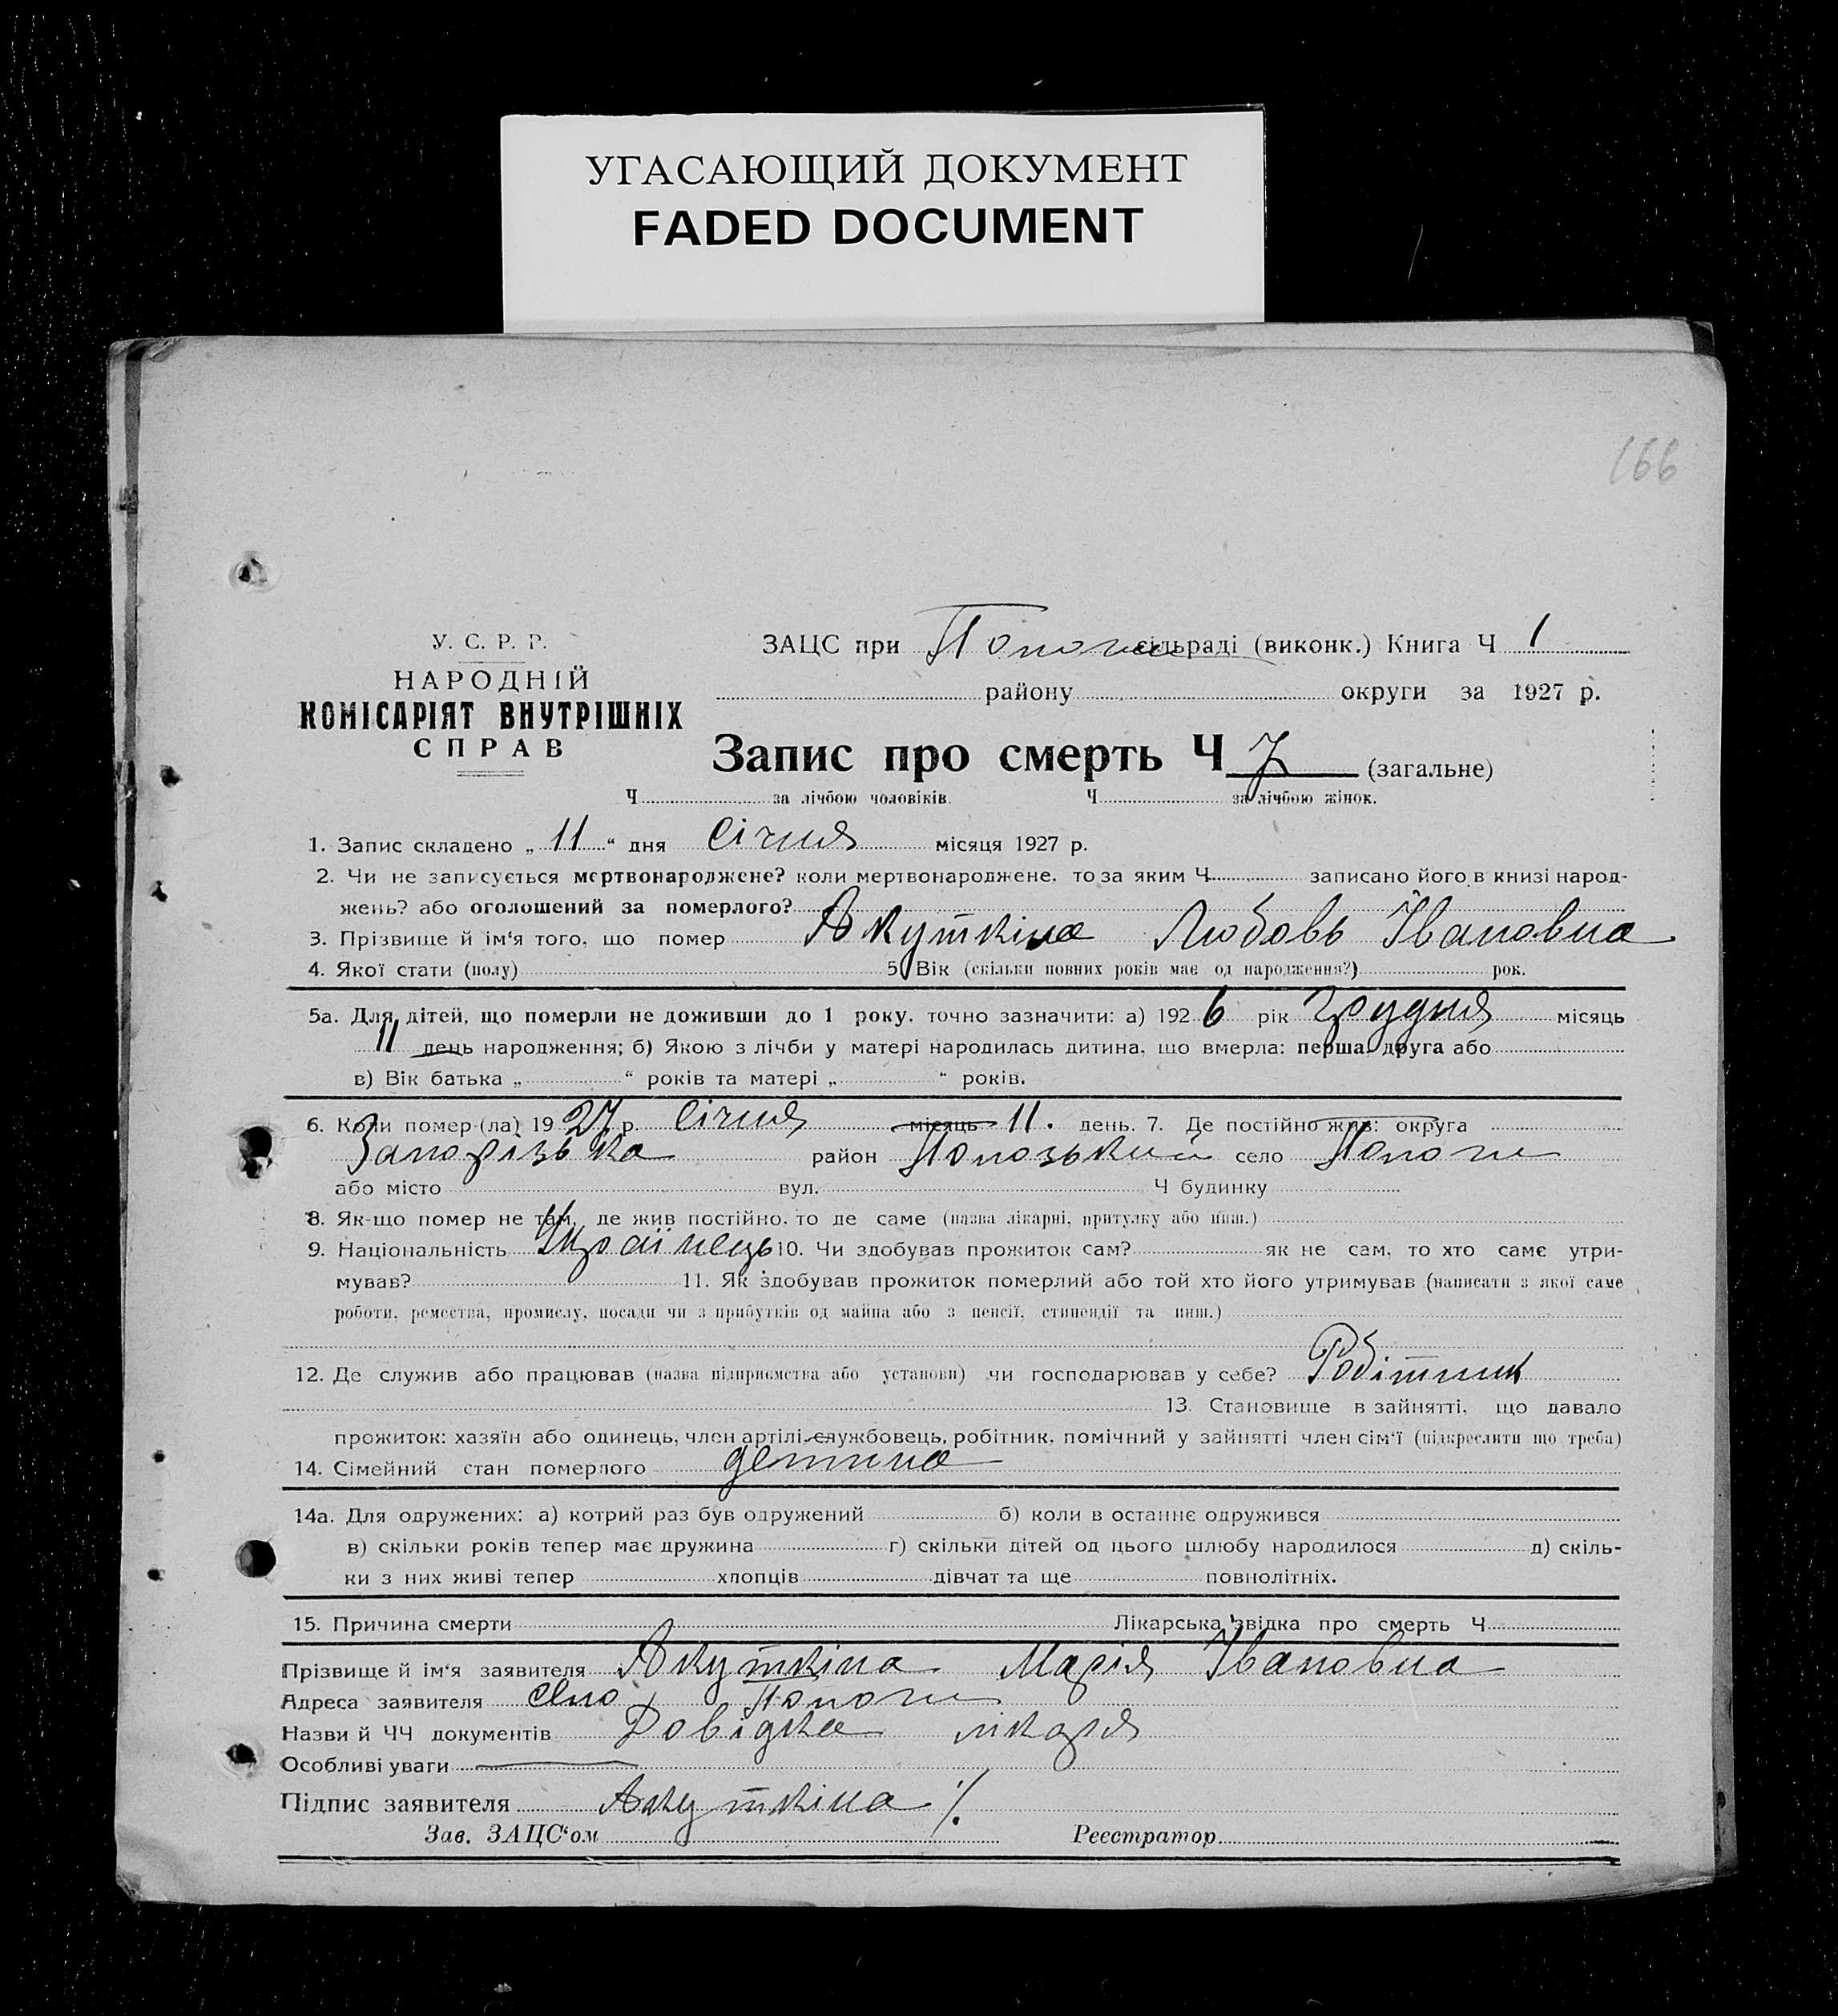 УГАСАЮЩИЙ ДОКУМЕНТ
FADED DOCUMENT
166
У. С. Р. Р.
НАРОДНІЙ
КОМІСАРІЯТ ВНУТРІШНІХ
СПРАВ
ЗАЦС при Пологи сільраді (виконк.) Книга Ч 1
району округи за 1927 р.
Запис про смерть Ч 7 (загальне)
Ч за лічбою чоловіків. Ч за лічбою жінок.
1. Запис складено „ 11 “ дня Січня місяця 1927 р.
2. Чи не записується мертвонароджене? коли мертвонароджене, то за яким Ч записано його в книзі народ-
жень? або оголошений за померлого?
3. Прізвище й ім‘я того, що помер Якуткіна Любовь Івановна
4. Якої стати (полу) 5. Вік (скільки повних років має од народження?) рок.
5а. Для дітей, що померли не доживши до 1 року, точно зазначити: а) 192 6 рік Грудня місяць
11 день народження; б) Якою з лічби у матері народилась дитина, що вмерла: перша, друга або
в) Вік батька „ “ років та матері „ “ років.
6. Коли помер (ла) 19 27 р. Січня місяць 11. день. 7. Де постійно жив: округа
Запорізька район Положький село Пологи
або місто вул. Ч будинку
8. Як-що помер не там, де жив постійно, то де саме (назва лікарні, притулку або инш.)
9. Національність Українець 10. Чи здобував прожиток сам? як не сам, то хто саме утри-
мував? 11. Як здобував прожиток померлий або той хто його утримував (написати з якої саме
роботи, ремества, промислу, посади чи з прибутків од майна або з пенсії, стипендії та инш.)
12. Де служив або працював (назва підприємства або установи) чи господарював у себе? Робітник
13. Становище в зайнятті, що давало
прожиток: хазяїн або одинець, член артілі, службовець, робітник, помічний у зайнятті член сім‘ї (підкреслити що треба)
14. Сімейний стан померлого детина
14а. Для одружених: а) котрий раз був одружений б) коли в останнє одружився
в) скільки років тепер має дружина г) скільки дітей од цього шлюбу народилося д) скіль-
ки з них живі тепер хлопців дівчат та ще повнолітніх.
15. Причина смерти Лікарська звідка про смерть Ч
Прізвище й ім‘я заявителя Якуткіна Марія Івановна
Адреса заявителя село Пологи
Назви й ЧЧ документів Довідка лікаря
Особливі уваги
Підпис заявителя Якуткіна
Зав. ЗАЦС‘ом Реєстратор